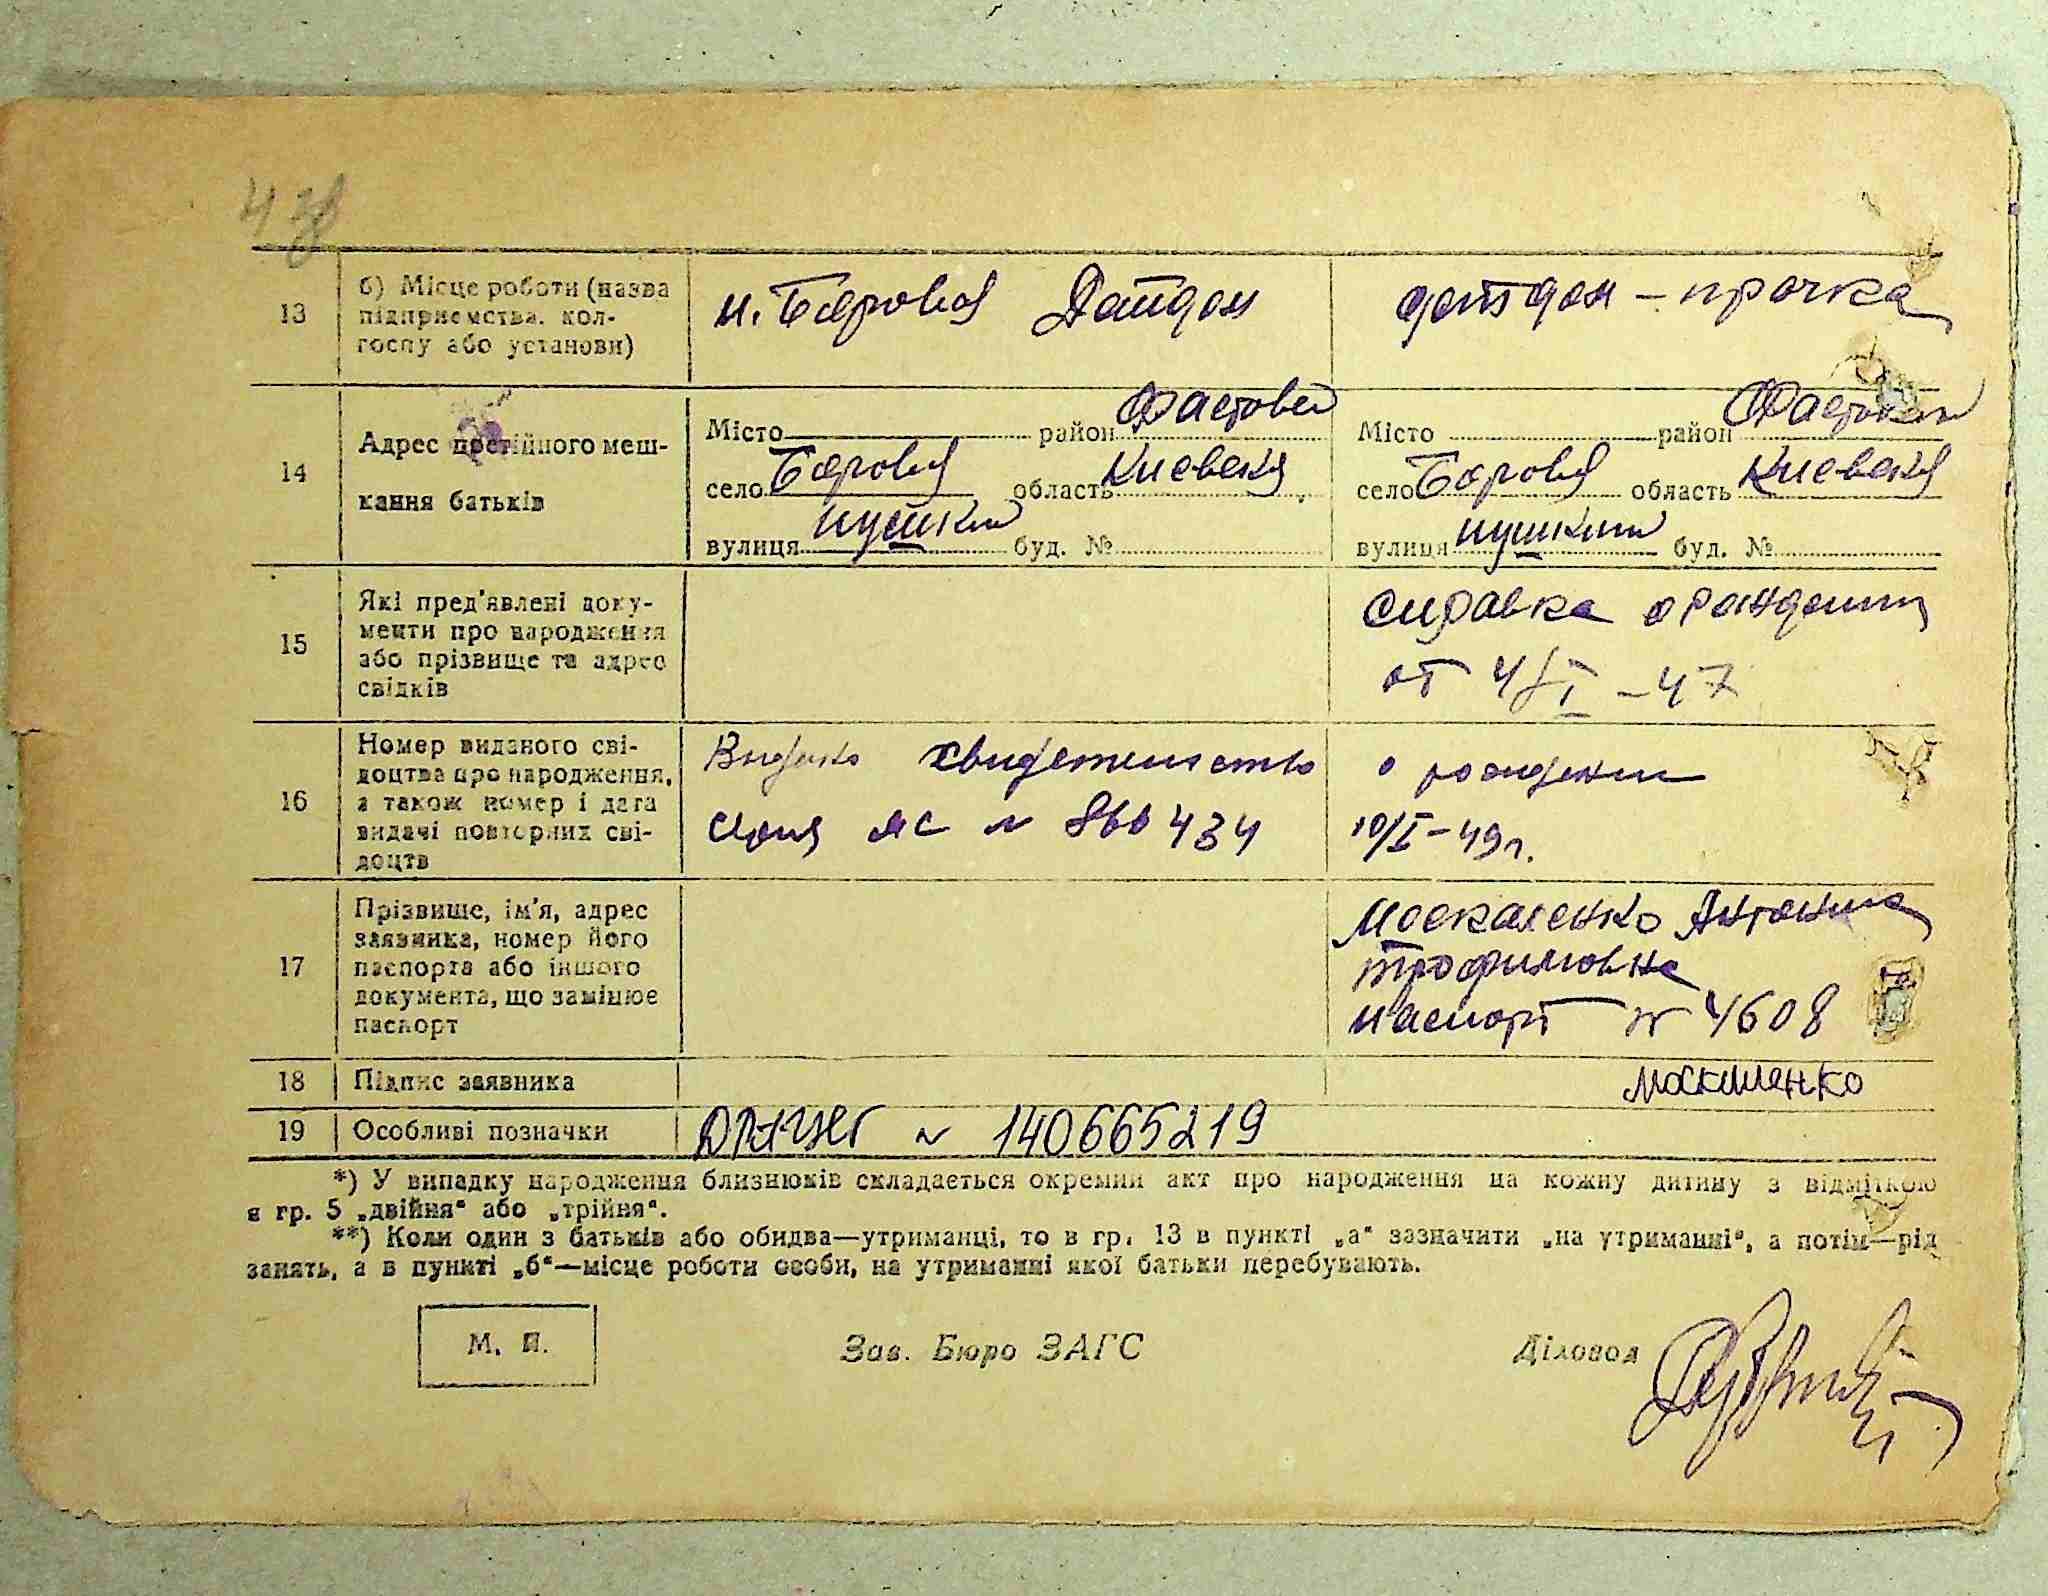 438
13 б) Місце роботи (назва підприємства, колгоспу або установи) н. Боровая Детдом детдом – прачка
14 Адрес постійного мешкання батьків
Місто район Фастовск Місто район Фастовск
село Боровая область Киевская село Боровая область Киевская
вулиця Пушкин буд. № вулиця Пушкин буд. №
15 Які пред'явлені документи про народження або прізвище та адрес свідків
справка о рождении
от 4/I – 47
16 Номер виданого свідоцтва про народження, а також номер і дата видачі повторних свідоцтв
Выдано свидетельство о рождении
серия ЯС № 860434 10/I – 49 г.
17 Прізвище, ім'я, адрес заявника, номер його паспорта або іншого документа, що замінює паспорт
Москаленко Антонина
Трофимовна
паспорт № 4608
18 Підпис заявника Москаленко
19 Особливі позначки № 140665219
*) У випадку народження близнюків складається окремий акт про народження на кожну дитину з відміткою
в гр. 5 „двійня“ або „трійня“.
**) Коли один з батьків або обидва—утриманці, то в гр. 13 в пункті „а“ зазначити „на утриманні“, а потім—рід
занять, а в пункті „б“—місце роботи особи, на утриманні якої батьки перебувають.
М. П. Зав. Бюро ЗАГС Діловод